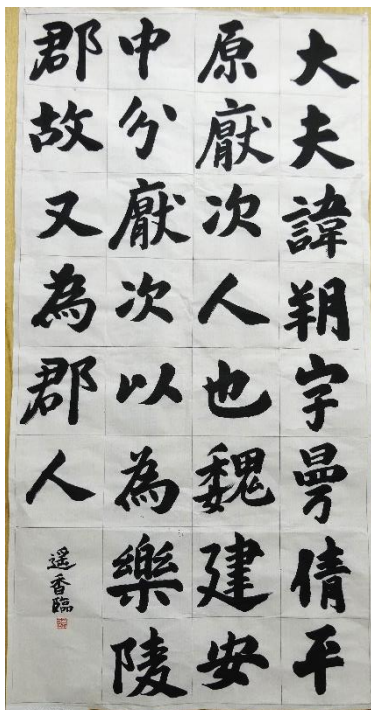 大夫諱朔字曼倩平
原厭次人也魏建安
中分厭次以為樂陵
郡故又為郡人
遙香臨